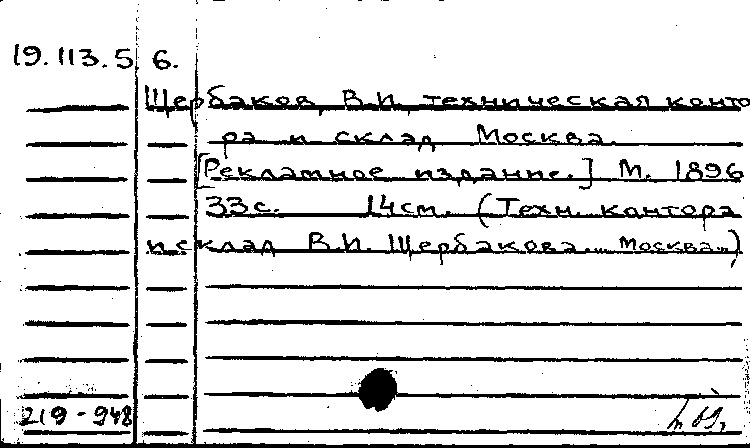 19.113.5.6.
Щербаков, В.И., техническая конто
ра и склад Москва.
[Рекламное издание.] М. 1896
33с. 14см. (Техн. контора
и склад В.И. Щербакова... Москва...)
219-948